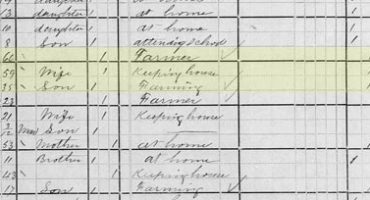 13 daughter 1 at home 1
10 daughter 1 at home 1
8 Son 1 attending school 1
60 1 Farmer
59 Wife 1 Keeping house
35 Son 1 Farming
23 1 Farmer
21 Wife 1 Keeping house
Son 1
53 Mother 1 at home 1
11 Brother at home 1
43 1 Keeping house
17 Son 1 Farming